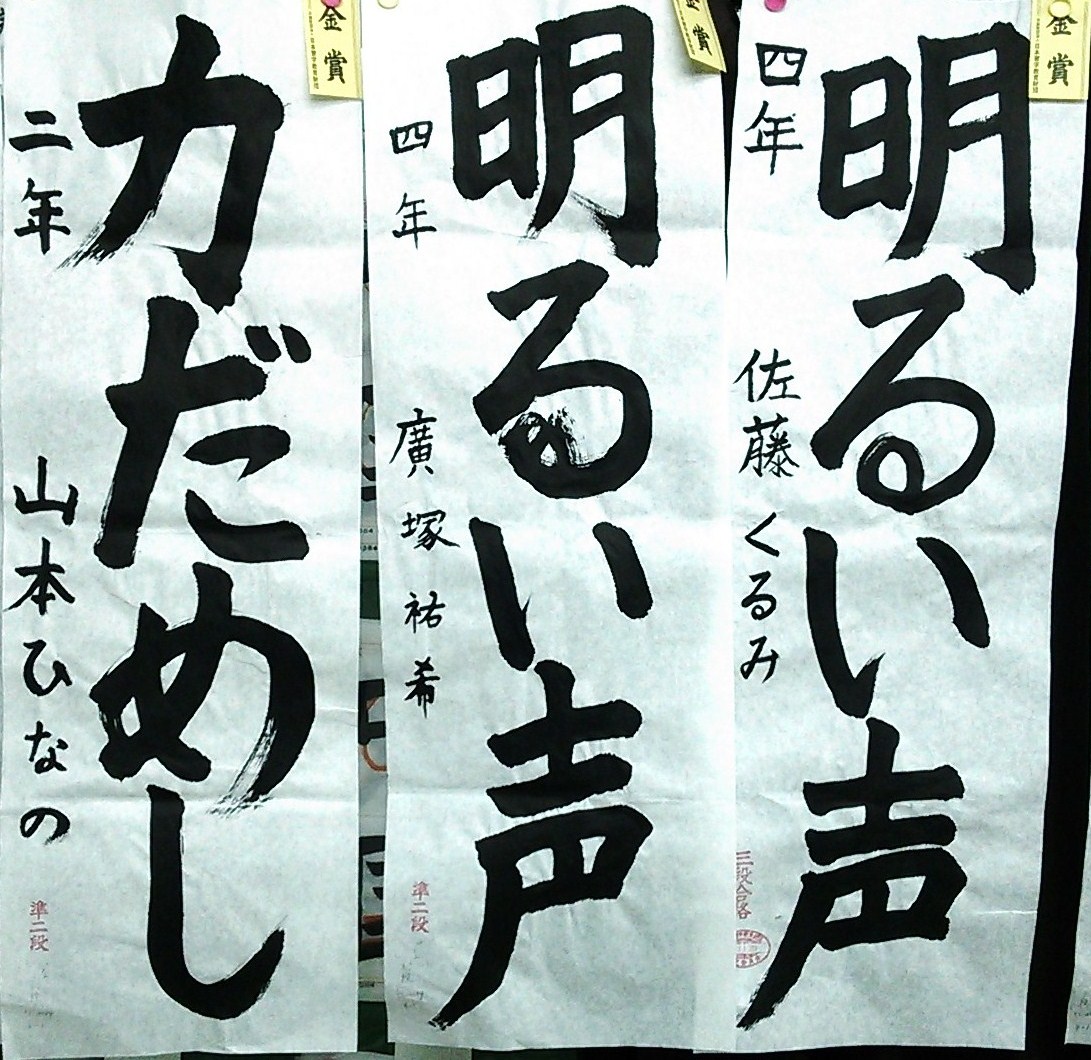 金賞
明るい声
四年 佐藤くるみ
三段合格
金賞
明るい声
四年 廣塚祐希
準二段
金賞
力だめし
二年 山本ひなの
準二段